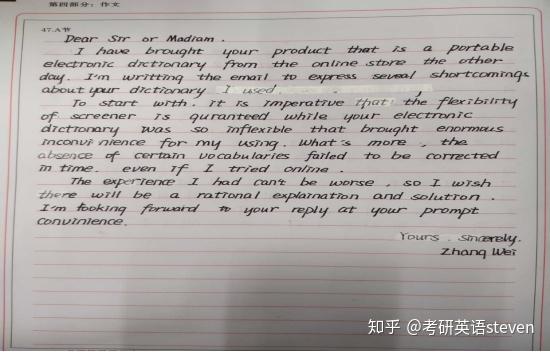 第四部分：作文
47.A节
Dear Sir or Madiam.
I have brought your product that is a portable
electronic dictionary from the online store the other
day. I'm writting the email to express seveal shortcomings
about your dictionary I used.
To start with, it is imperative that the flexibility
of screener is quranteed while your electronic
dictronary was so inflexible that brought enormous
inconvinience for my using. What's more, the
absence of certain vocabularies failed to be corrected
in time. even if I tried online.
The experience I had can't be worse, so I wish
there will be a rational explaination and solution.
I'm fooking forward to your reply at your prompt
convinience.
Yours. Sincerely.
Zhang Wei
知乎 @考研英语steven